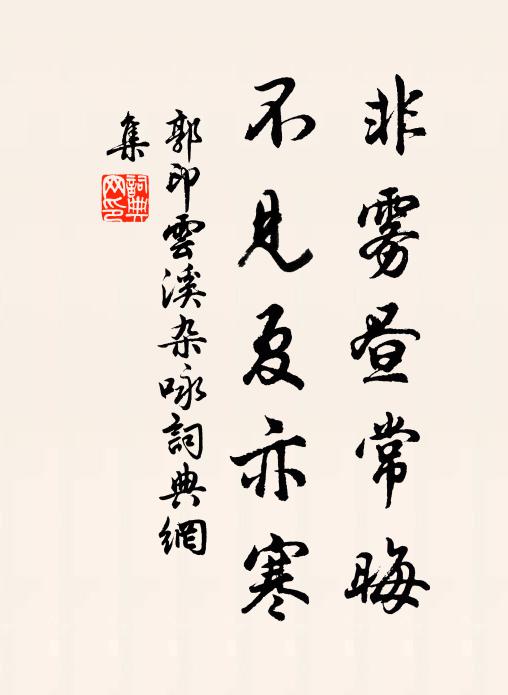 非雾昼常晦
不见夏亦寒
郭印雲溪杂咏詞典網
集
詞典
网印